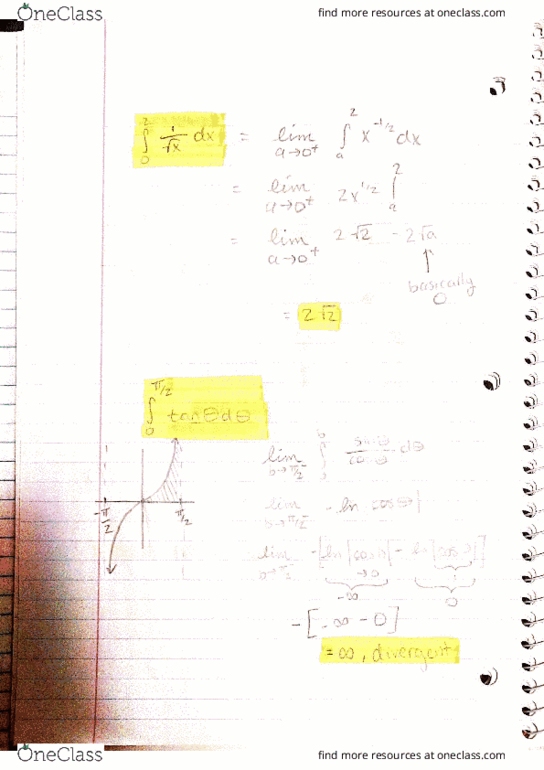 OneClass
find more resources at oneclass.com
∫₀² 1/√x dx = lim a→0⁺ ∫ₐ² x^(-1/2) dx
= lim a→0⁺ 2x^(1/2) ∫ₐ²
= lim a→0⁺ 2√2 - 2√a
↑
basically
0
= 2√2
∫₀^(π/2) tanθdθ
lim b→π/2⁻ ∫₀ᵇ sinθ/cosθ dθ
-π/2 π/2
lim b→π/2⁻ - ln cosθ|
lim b→π/2⁻ -[ln|cosb| - ln|cos0|]
→0 1
-∞ 0
-[-∞ - 0]
= ∞, divergent
OneClass
find more resources at oneclass.com